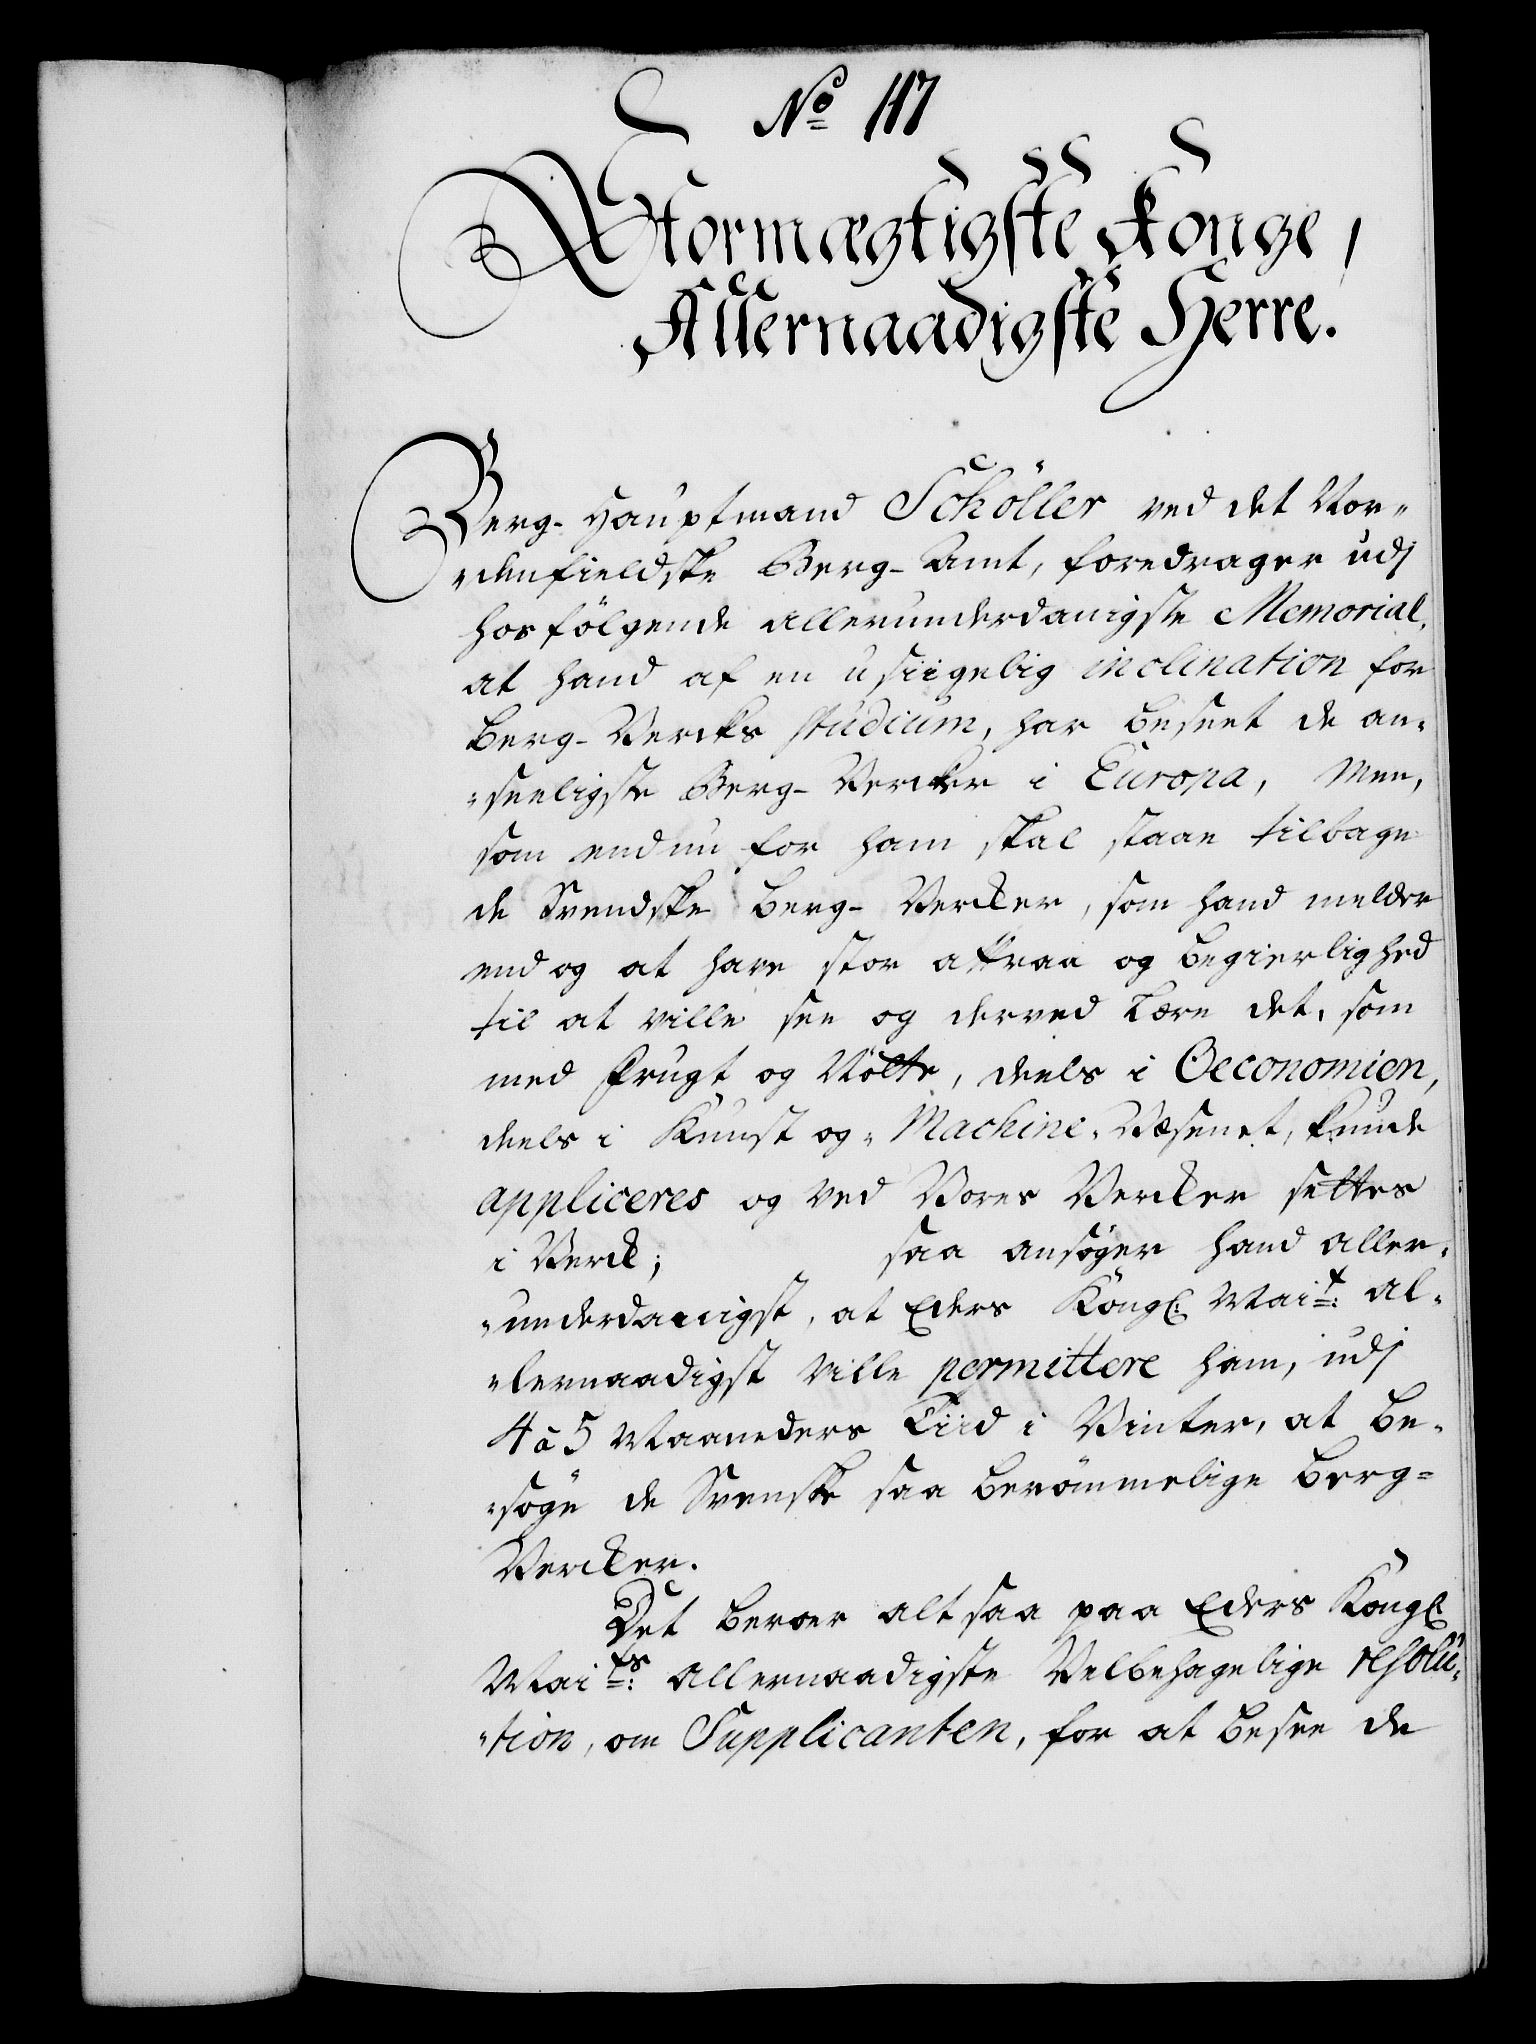 No 117
Stormægtigste Konge,
Allernaadigste Herre.
Berg-Hauptmand Schöller ved det Nor-
denfieldske Berg-Amt, foredrager udj
hosfölgende allerunderdanigste Memorial,
at hand af en usiigelig inclination for
Berg-Vercks studium, har beseet de an-
seeligste Berg-Vercker i Europa, Men,
som endnu for ham skal staae tilbage
de Svendske Berg-Vercker, som hand melder
end og at have stor attraa og begierlighed
til at ville see og derved lære det, som
med Frugt og Nÿtte, deels i Oeconomien,
deels i Kunst og Machine-Væsenet, kunde
appliceres og ved Vores Vercker settes
i Verck; saa ansöger hand aller-
underdanigst, at Eders Kongl. Mait: al-
lernaadigst ville permittere ham, udj
4 à 5 Maaneders Tiid i Vinter, at be-
söge de Svenske saa berömmelige Berg-
Vercker.
Det beroer altsaa paa Eders Kongl
Maits: allernaadigste Velbehagelige resolu-
tion, om Supplicanten, for at besee de